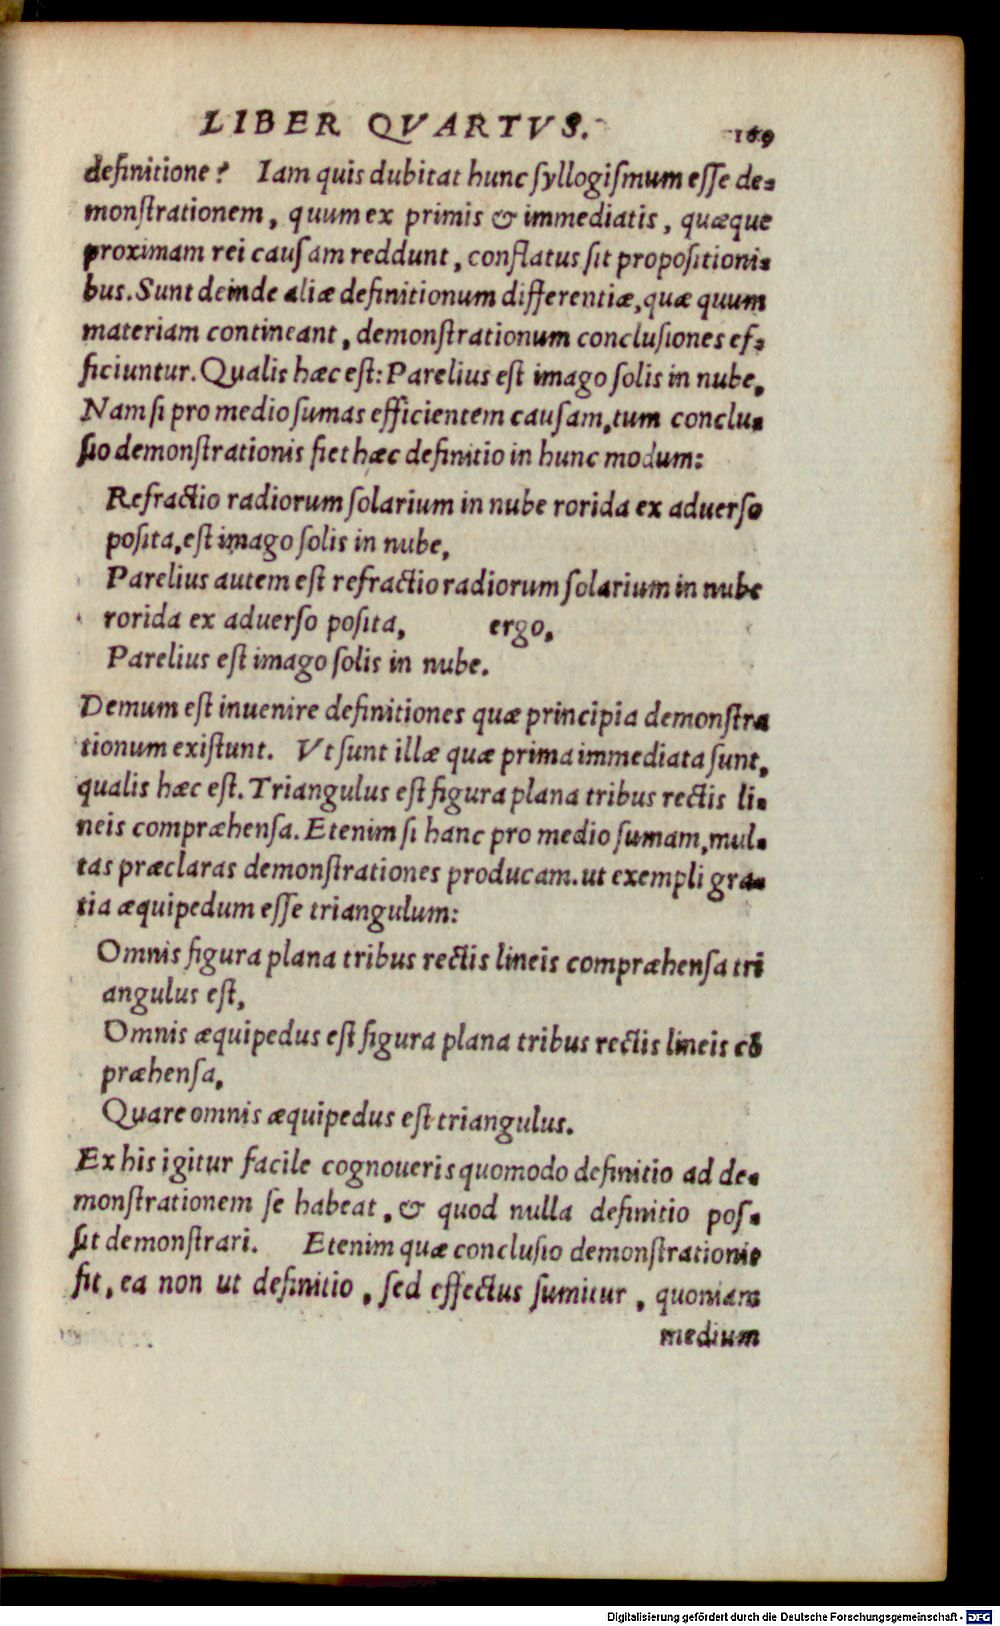 LIBER QVARTVS. 169
definitione? Iam quis dubitat hunc ſyllogiſmum eſſe de-
monſtrationem, quum ex primis & immediatis, quæque
proximam rei cauſam reddunt, conflatus ſit propoſitioni-
bus. Sunt deinde aliæ definitionum differentiæ, quæ quum
materiam contineant, demonſtrationum concluſiones ef-
ficiuntur. Qualis hæc eſt: Parelius eſt imago ſolis in nube,
Nam ſi pro medio ſumas efficientem cauſam, tum conclu-
ſio demonſtrationis fiet hæc definitio in hunc modum:
Refractio radiorum ſolarium in nube rorida ex aduerſo
poſita, eſt imago ſolis in nube,
Parelius autem eſt refractio radiorum ſolarium in nube
rorida ex aduerſo poſita, ergo,
Parelius eſt imago ſolis in nube.
Demum eſt inuenire definitiones quæ principia demonſtra
tionum exiſtunt. Vt ſunt illæ quæ prima immediata ſunt,
qualis hæc eſt. Triangulus eſt figura plana tribus rectis li-
neis compræhenſa. Etenim ſi hanc pro medio ſumam, mul-
tas præclaras demonſtrationes producam. ut exempli gra-
tia æquipedum eſſe triangulum:
Omnis figura plana tribus rectis lineis compræhenſa tri
angulus eſt,
Omnis æquipedus eſt figura plana tribus rectis lineis cō
præhenſa,
Quare omnis æquipedus eſt triangulus.
Ex his igitur facile cognoueris quomodo definitio ad de-
monſtrationem ſe habeat, & quod nulla definitio poſ-
ſit demonſtrari. Etenim quæ concluſio demonſtrationis
fit, ea non ut definitio, ſed effectus ſumitur, quoniam
medium
Digitalisierung gefördert durch die Deutsche Forschungsgemeinschaft - DFG